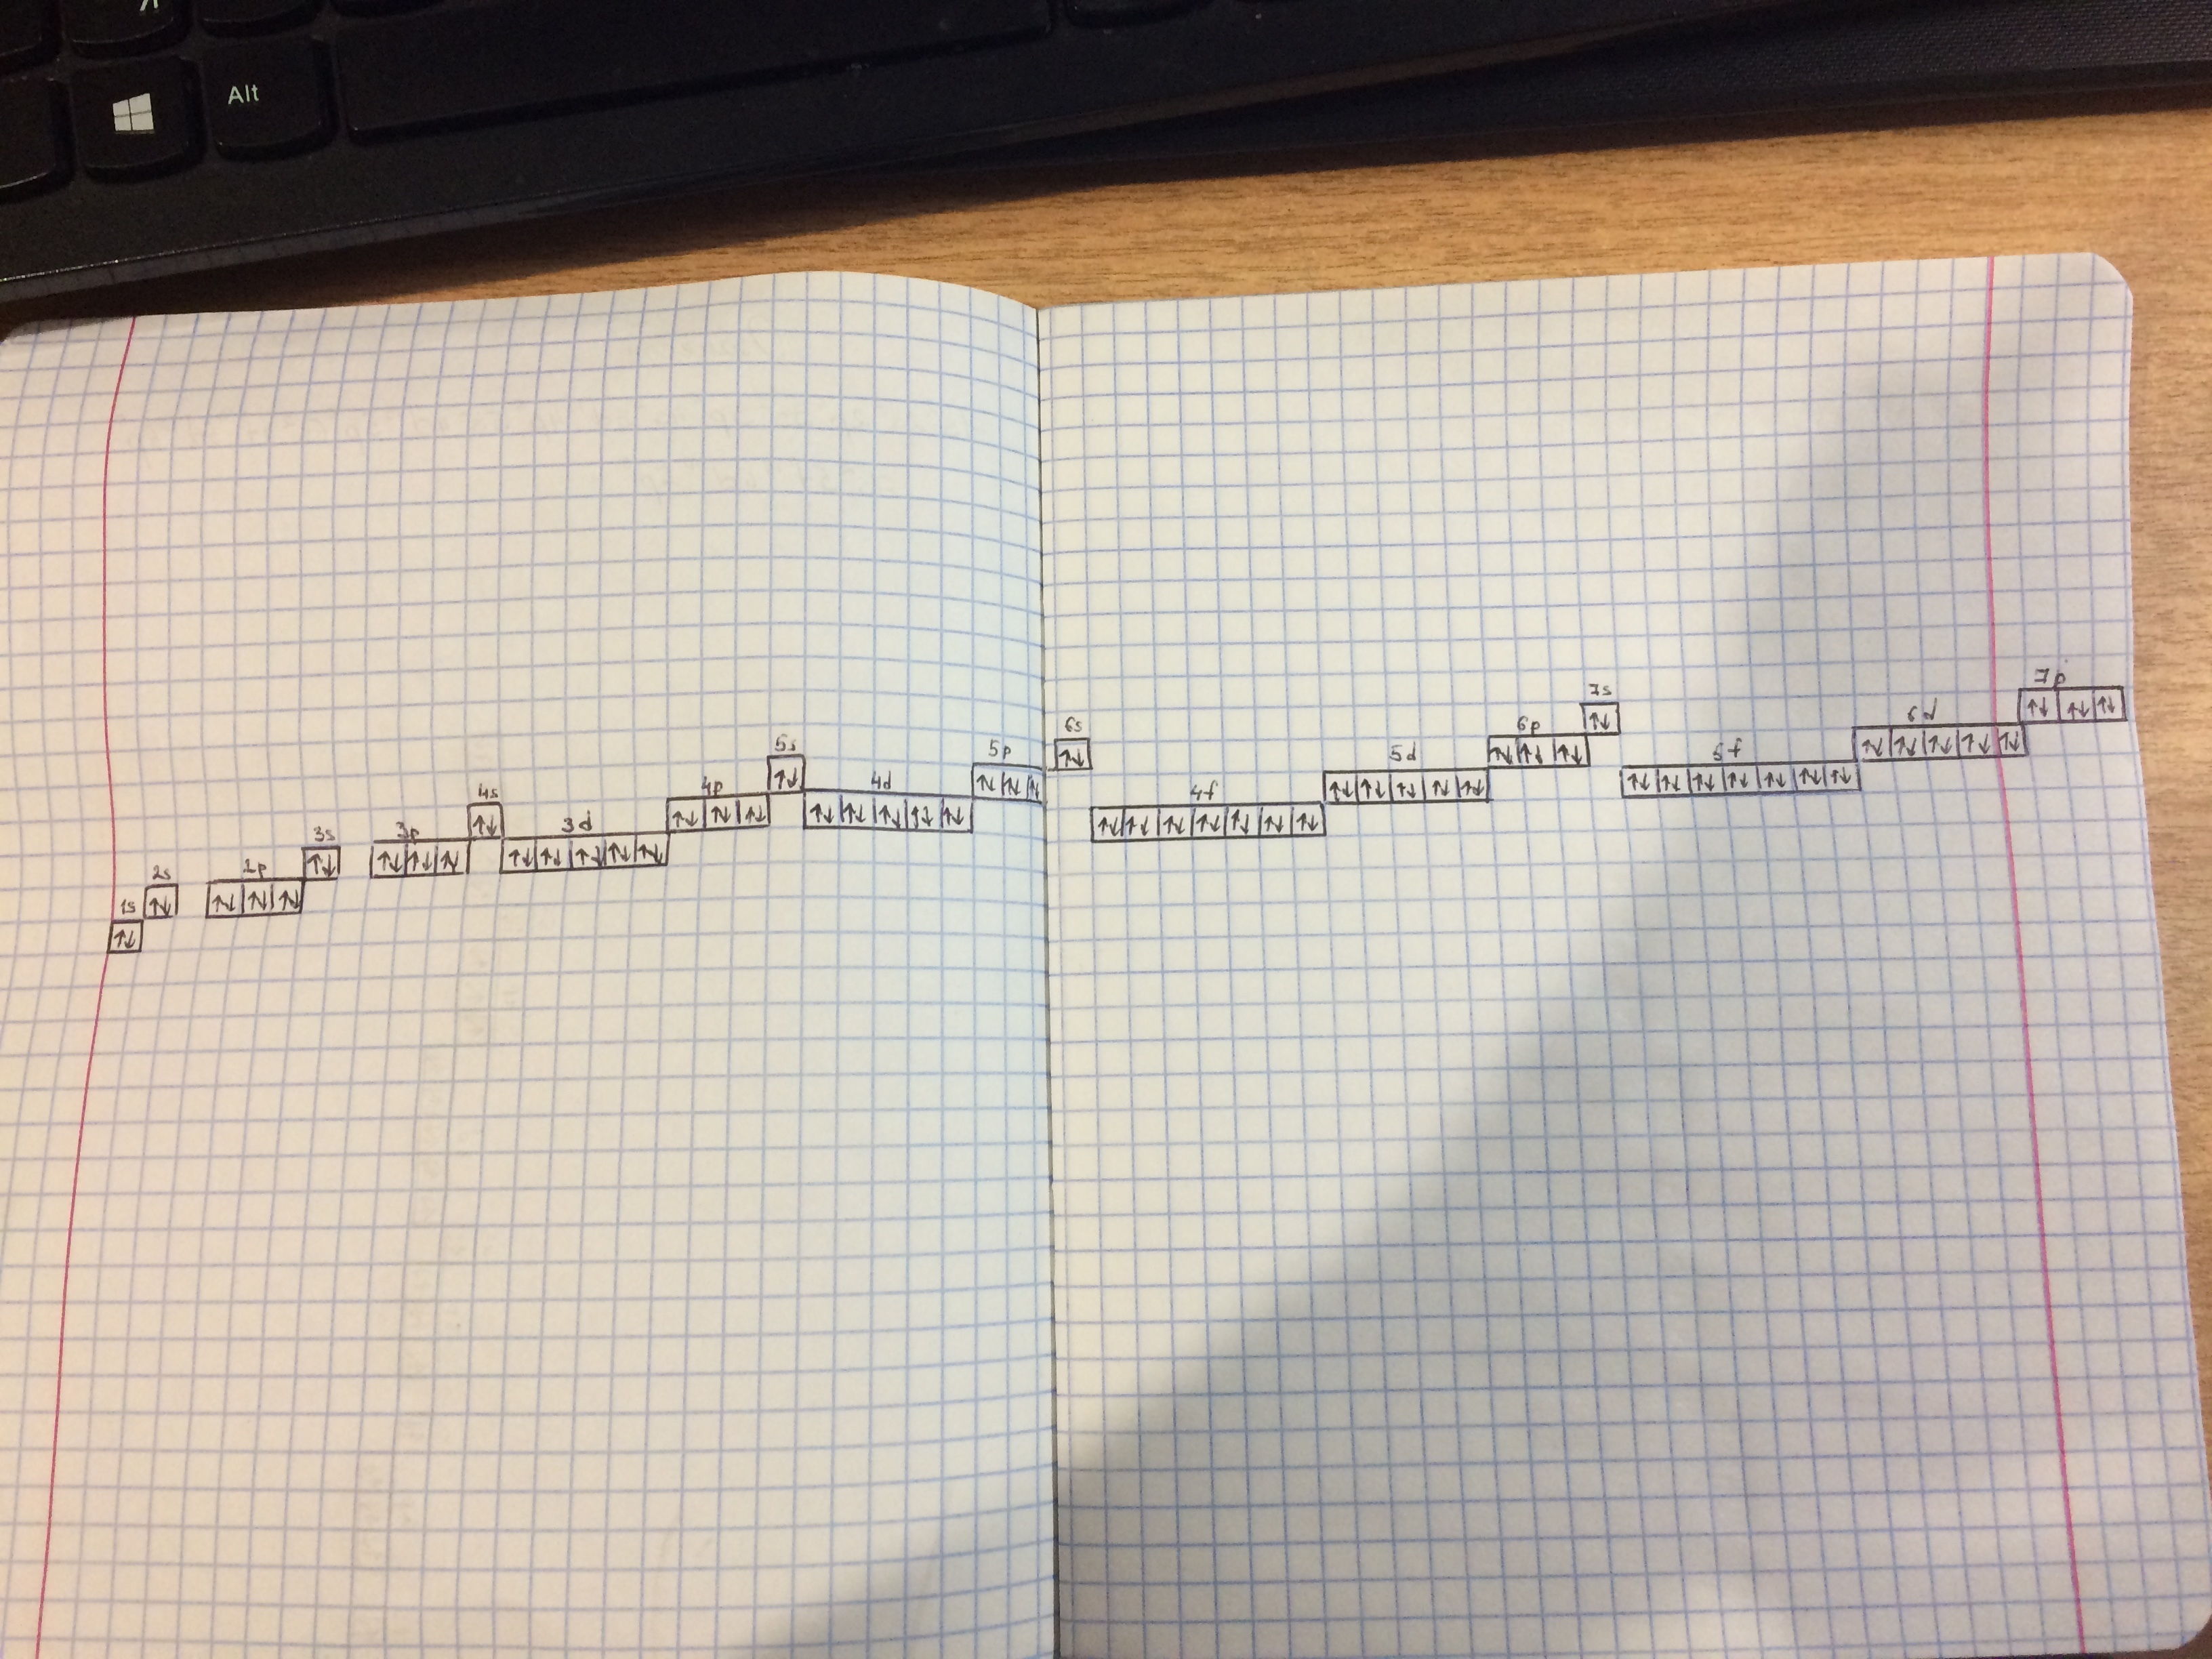 Alt
1s 2s 2p 3s 3p 4s 3d 4p 5s 4d 5p 6s 4f 5d 6p 7s 5f 6d 7p
↑↓ ↑↓ ↑↓ ↑↓ ↑↓ ↑↓ ↑↓ ↑↓ ↑↓ ↑↓ ↑↓ ↑↓ ↑↓ ↑↓ ↑↓ ↑↓ ↑↓ ↑↓ ↑↓ ↑↓ ↑↓ ↑↓ ↑↓ ↑↓ ↑↓ ↑↓ ↑↓ ↑↓ ↑↓ ↑↓ ↑↓ ↑↓ ↑↓ ↑↓ ↑↓ ↑↓ ↑↓ ↑↓ ↑↓ ↑↓ ↑↓ ↑↓ ↑↓ ↑↓ ↑↓ ↑↓ ↑↓ ↑↓ ↑↓ ↑↓ ↑↓ ↑↓ ↑↓ ↑↓ ↑↓ ↑↓ ↑↓ ↑↓ ↑↓